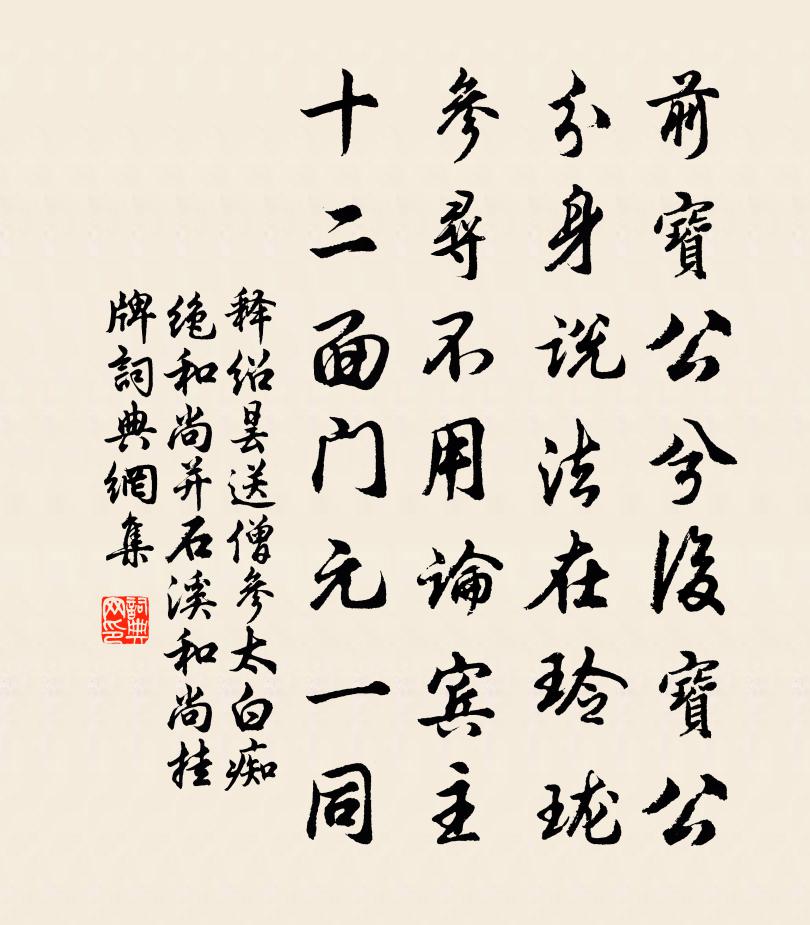 前寶公兮後寶公
分身说法在玲珑
參尋不用論宾主
十二面门元一同
释绍曇送僧參太白痴
绝和尚并石溪和尚挂
牌詞典網集
詞典网印